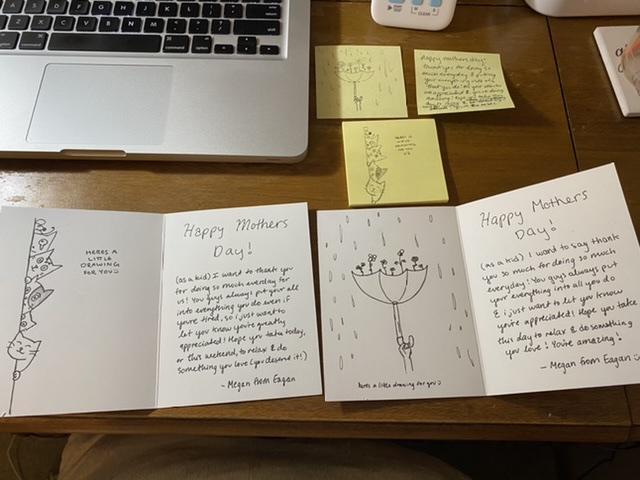 Happy mothers day!
thank you for doing so
much everyday & putting
your everything into all
that you do!
HERES A
LITTLE
DRAWING
FOR YOU
HERES A
LITTLE
DRAWING
FOR YOU
Happy Mothers
Day!
(as a kid) I want to thank you
for doing so much everday for
us! You guys always put your all
into everything you do even if
you're tired, so i just want to
let you know you're greatly
appreciated! Hope you take today,
or this weekend, to relax & do
something you love (you deserve it!)
- Megan from Eagan
heres a little drawing for you
Happy Mothers
Day!
(as a kid) I want to say thank
you so much for doing so much
everyday! You guys always put
your everything into all you do
& i just want to let you know
you're appreciated! Hope you take
this day to relax & do something
you love! You're amazing!
- Megan from Eagan